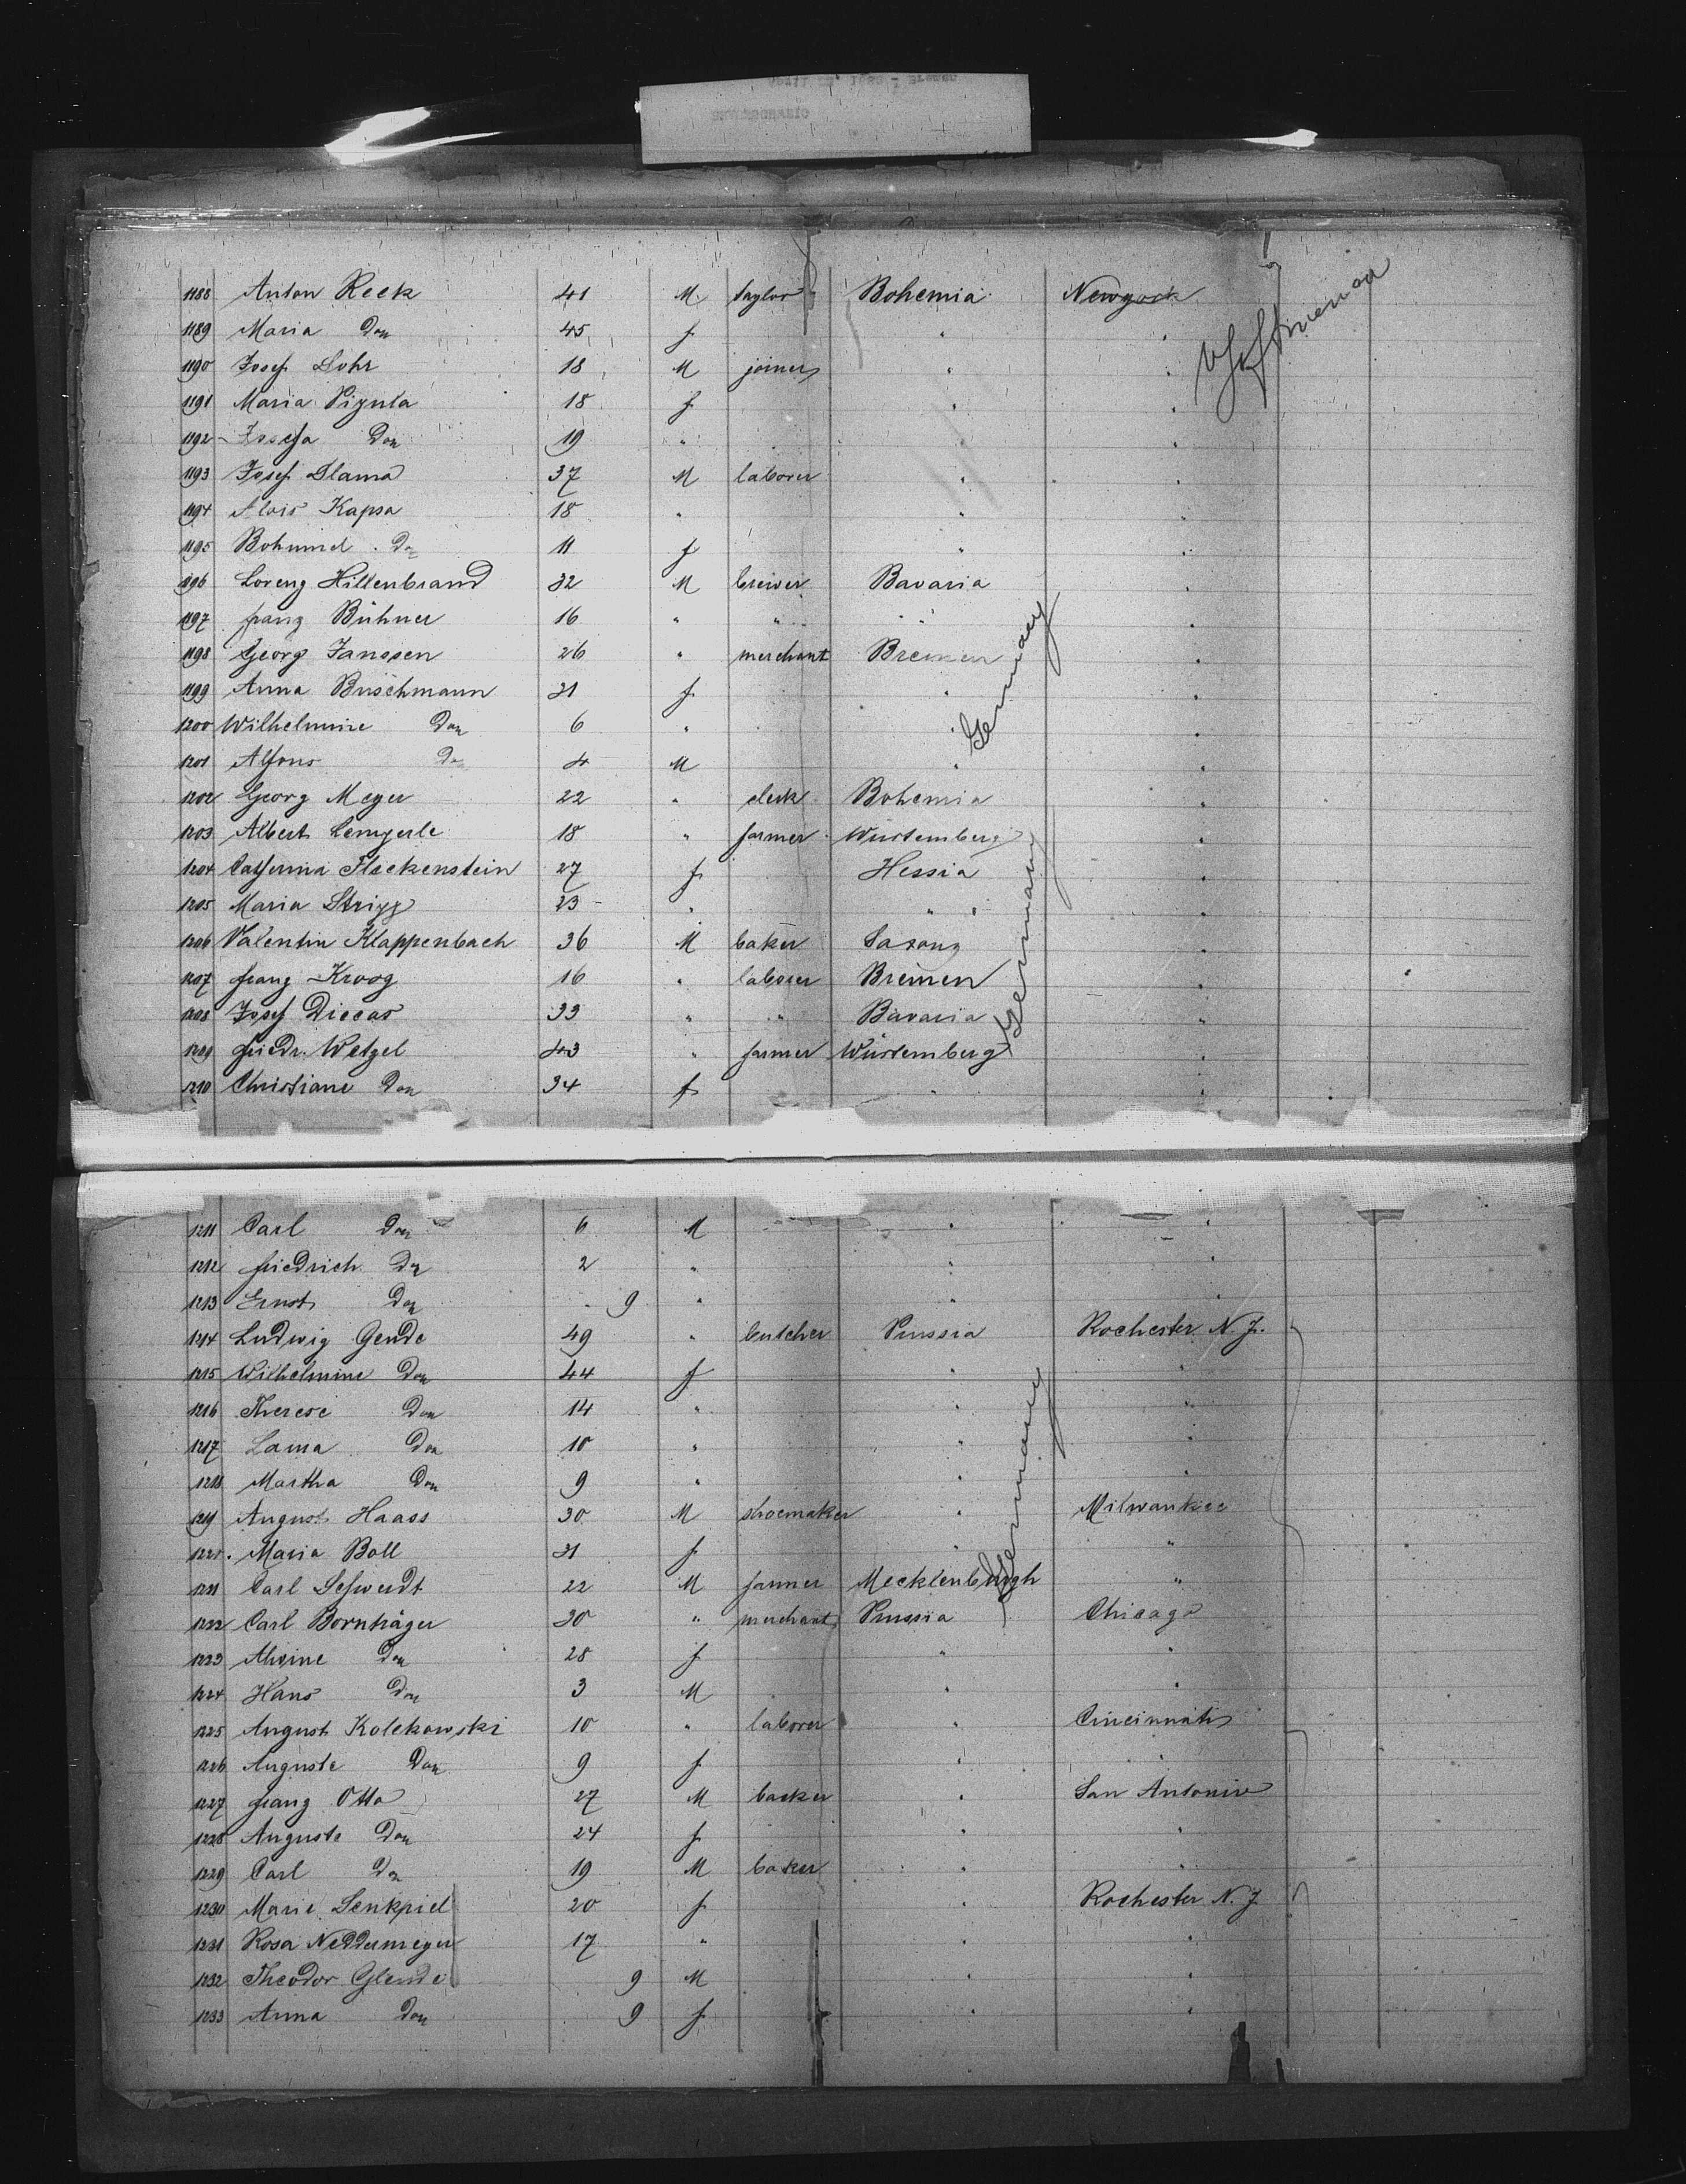 1188 Anton Reek 41 M. taylor Bohemia Newyork
1189 Maria Do 45 f "
1190 Josef Lohr 18 M joiner " "
1191 Maria Pigula 18 f " "
1192 Josefa Do 19 " "
1193 Josef Dlama 37 M laborer " "
1194 Alois Kapsa 18 " " "
1195 Do 11 f " "
1196 Lorenz Hillenbrand 32 M breiver Bavaria "
1197 franz Bühner 16 " " " "
1198 Georg Janssen 26 " merchant Bremen "
1199 Anna Buschmann 31 f " "
1200 Wilhelmine Do 6 " " "
Germany
1201 Alfons Do 4 M " "
1202 Georg Meyer 22 " clerk Bohemia "
1203 Albert 18 " farmer Würtemberg "
1204 Catherina Fleckenstein 27 f Hessia "
1205 Maria 23 " " "
1206 Valentin Klappenbach 36 M baker Saxony "
Germany
1207 franz Kroog 16 " laborer Bremen "
1208 Josef Diccas 33 " " Bavaria "
1209 friedr. Wetzel 43 " farmer Würtemberg "
1210 Christiane Do 34 f " "
1211 Carl Do 6 M " "
1212 friedrich Do 2 " " "
1213 Ernst Do 9 " " "
1214 Ludwig Gende 49 " butcher Prussia Rochester N. J.
1215 Wilhelmine Do 44 f " "
1216 Therese Do 14 " "
1217 Do 10 " " "
1218 Martha Do 9 " " "
Germany
1219 August Haass 30 M shoemaker " Milwaukee
1220 Maria Boll 31 f " "
1221 Carl Schwerdt 22 M farmer Mecklenburgh "
1222 Carl Bornhäger 30 " merchant Prussia Chicago
1223 Alwine Do 28 f " "
1224 Hans Do 3 M "
1225 August Kolekowski 10 " laborer " Cincinnati
1226 Auguste Do 9 f " "
1227 franz Otto 27 M backer " San Antonio
1228 Auguste Do 24 f " "
1229 Carl Do 19 M baker " "
1230 Marie Senkpiel 20 f " Rochester N. J
1231 Rosa Neddermeyer 17 " " "
1232 Theodor Glende 9 M " "
1233 Anna Do 9 f " "